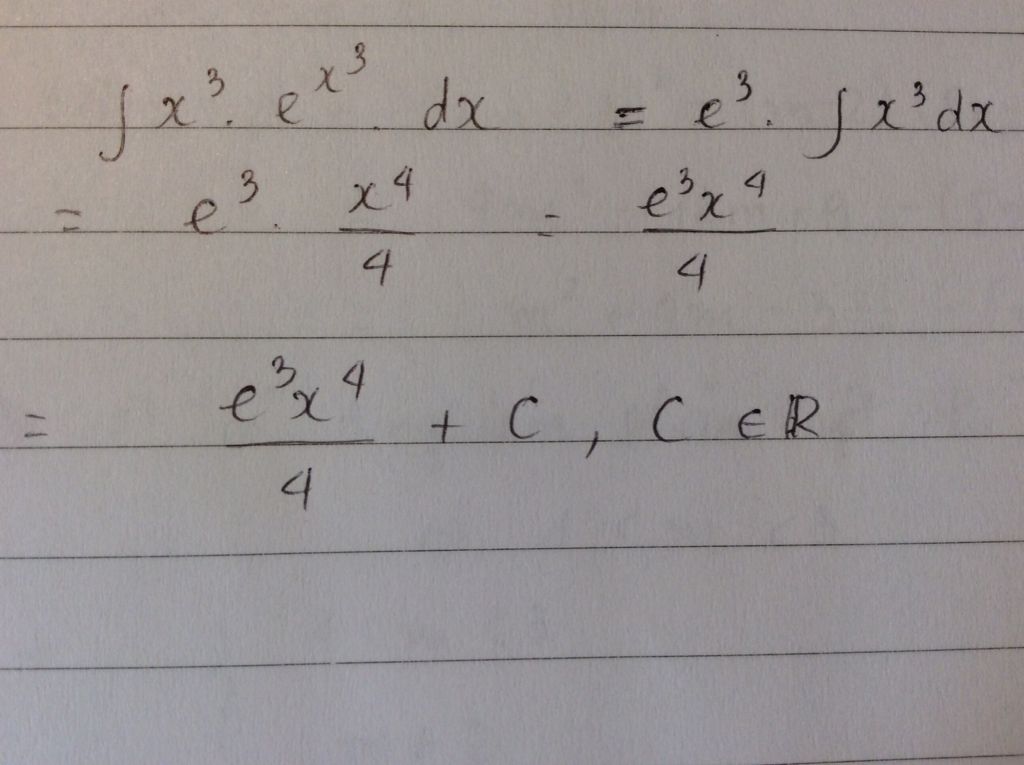 ∫ x³ · e^{x³} · dx = e³ · ∫ x³ dx
= e³ · x⁴/4 = e³x⁴/4
= e³x⁴/4 + C , C ∈ ℝ